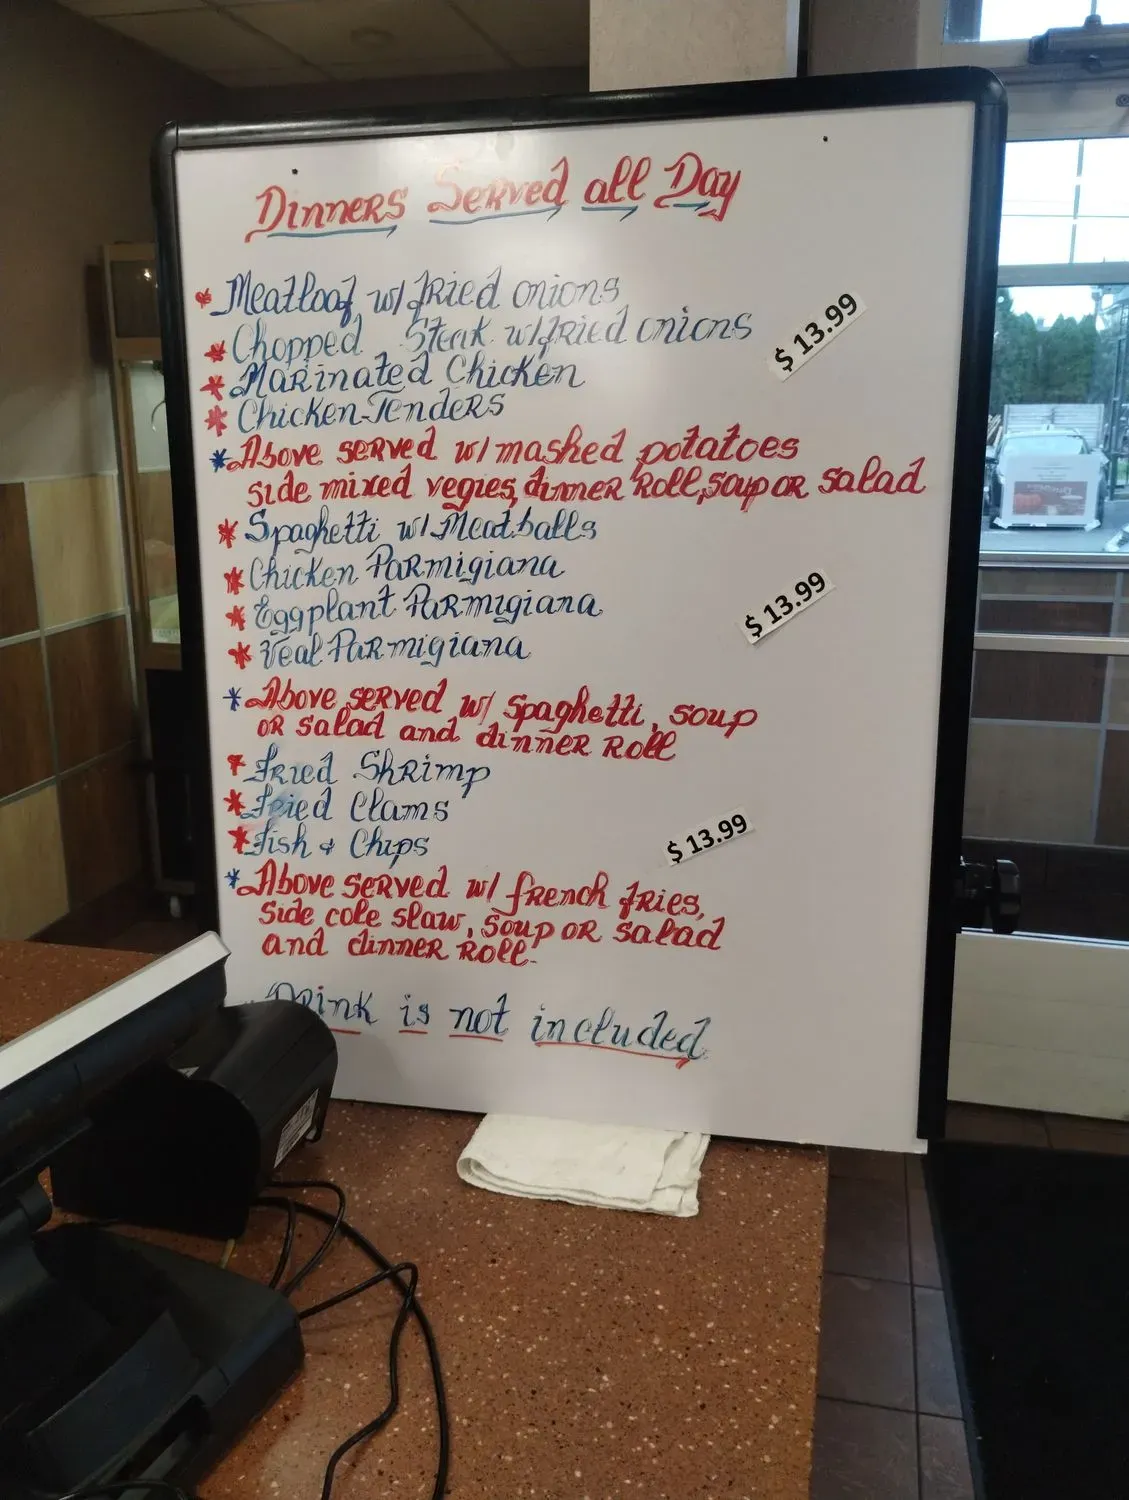 Dinners Served all Day
Meatloaf w/ fried onions
Chopped Steak w/fried onions
$ 13.99
Marinated Chicken
Chicken-Tenders
Above served w/ mashed potatoes
side mixed vegies, dinner roll, soup or salad
Spaghetti w/ Meatballs
Chicken Parmigiana
$ 13.99
Eggplant Parmigiana
Veal Parmigiana
Above served w/ spaghetti, soup
or salad and dinner roll
Fried Shrimp
Fried Clams
$ 13.99
Fish & Chips
Above served w/ french fries,
side cole slaw, soup or salad
and dinner roll.
Drink is not included